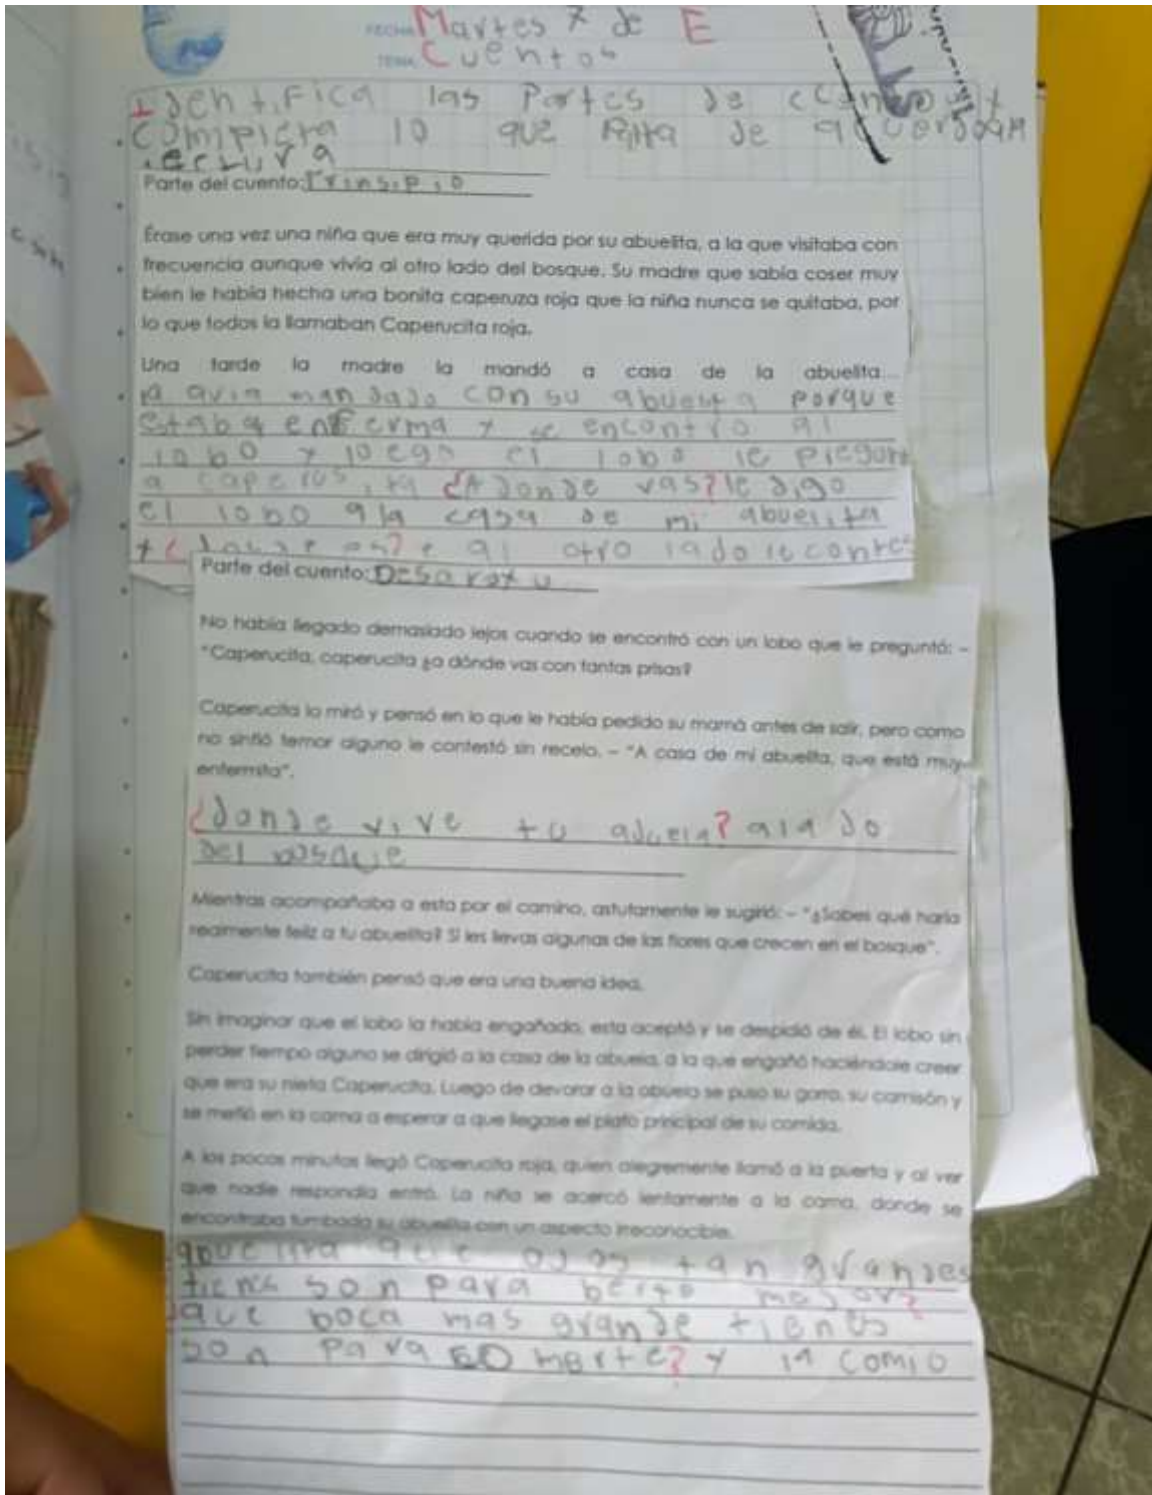 FECHA: Martes 7 de E
TEMA: Cuentos
Identifica las Partes de
completa lo que falta de acuerdo a la
lectura
Parte del cuento: Prinsipio
Érase una vez una niña que era muy querida por su abuelita, a la que visitaba con
frecuencia aunque vivía al otro lado del bosque. Su madre que sabía coser muy
bien le había hecha una bonita caperuza roja que la niña nunca se quitaba, por
lo que todos la llamaban Caperucita roja.
Una tarde la madre la mandó a casa de la abuelita...
la avia mandado con su abuelita porque
estaba enferma y se encontro al
lobo y loego el lobo le pregunt
a caperusita ¿A donde vas? le digo
el lobo a la casa de mi abuelita
y ¿ al otro lado le contes
Parte del cuento: Desaroyo
No había llegado demasiado lejos cuando se encontró con un lobo que le preguntó: –
"Caperucita, caperucita ¿a dónde vas con tantas prisas?
Caperucita lo miró y pensó en lo que le había pedido su mamá antes de salir, pero como
no sintió temor alguno le contestó sin recelo. – "A casa de mi abuelita, que está muy
enfermita".
¿donde vive tu abuela? al lado
del bosque
Mientras acompañaba a esta por el camino, astutamente le sugirió: – "¿Sabes qué haría
realmente feliz a tu abuelita? Si les llevas algunas de las flores que crecen en el bosque".
Caperucita también pensó que era una buena idea.
Sin imaginar que el lobo la había engañado, esta aceptó y se despidió de él. El lobo sin
perder tiempo alguno se dirigió a la casa de la abuela, a la que engañó haciéndole creer
que era su nieta Caperucita. Luego de devorar a la abuela se puso su gorro, su camisón y
se metió en la cama a esperar a que llegase el plato principal de su comida.
A los pocos minutos llegó Caperucita roja, quien alegremente llamó a la puerta y al ver
que nadie respondía entró. La niña se acercó lentamente a la cama, donde se
encontraba tumbada su abuelita con un aspecto irreconocible.
abuelita que ojos tan grandes
tiens son para berte mejor?
que boca mas grande tienes
son para comerte? y la comio